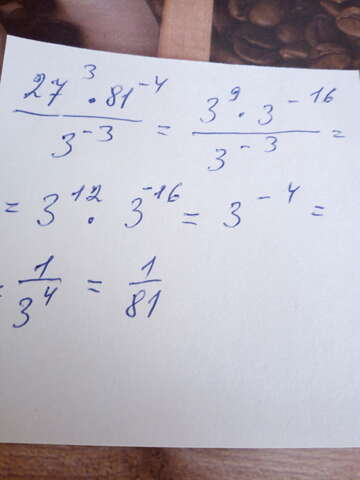 27³ · 81⁻⁴ / 3⁻³ = 3⁹ · 3⁻¹⁶ / 3⁻³ =
= 3¹² · 3⁻¹⁶ = 3⁻⁴ =
= 1/3⁴ = 1/81